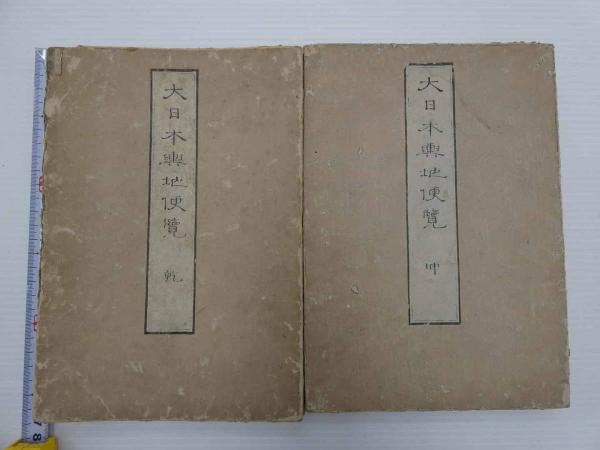 大日本輿地便覧
乾
大日本輿地便覧
坤
7
8